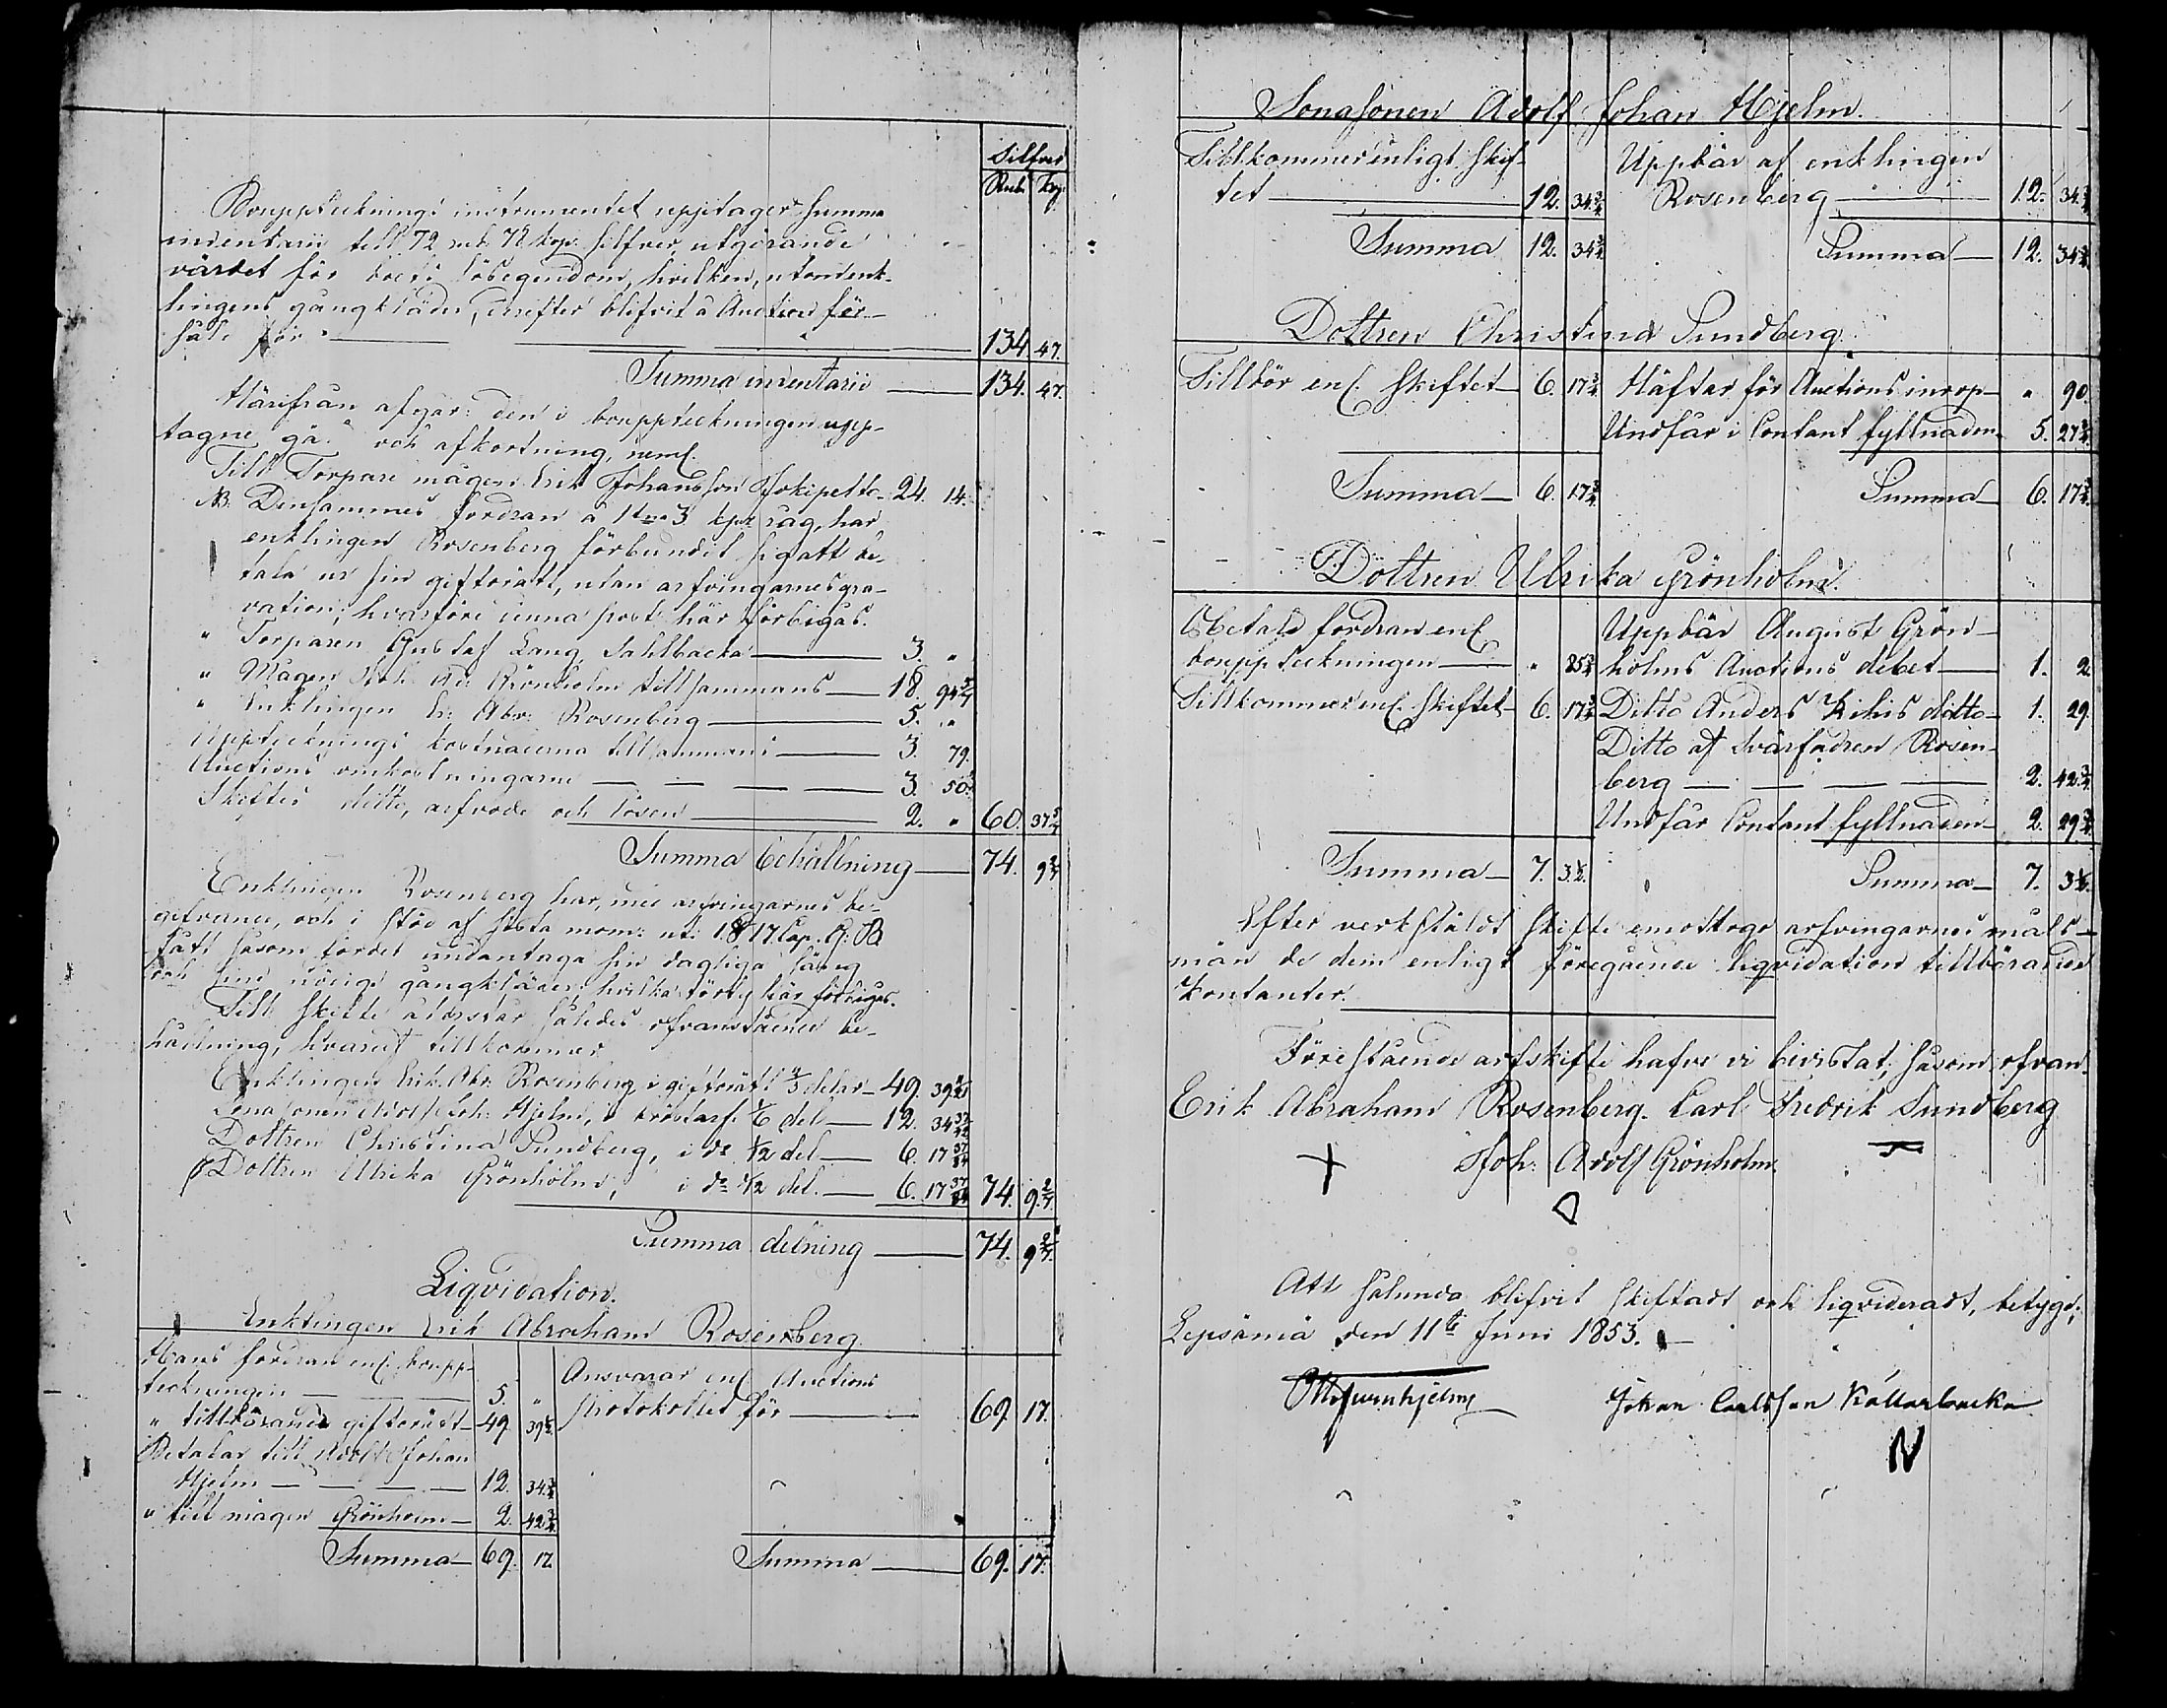 Silfver
Rub. Kop.
Bouppteckningsinstrumentet upptager Summa
inventarii till 72 rub. 72 kop. silfver, utgörande
värdet för boets lösegendom, hvilken, utom enk-
lingens gångkläder, derefter blifvit å Auction för-
såld för 134 47.
Summa inventarii 134. 47.
Härifrån afgår: den i bouppteckningen upp-
tagne gä. och afkortning, neml.
Till Torpare mågen Erik Johansson Jokipelto 24. 14.
NB. Densammes fordran å 1 t:na 3 kpr råg, har
enklingen Rosenberg förbundit sig att be-
tala ur sin giftorätt, utan arfvingarnes gra-
vation; hvarföre denna post här förbigås.
" Torparen Gustaf Lang Sahlbacka 3. "
" Mågen Joh. Ad. Grönholm tillsammans 18. 94 2/7
" Enklingen Er: Abr: Rosenberg 5. "
Uppteckningskostnaderna tillsammans 3. 79.
Auctions omkostningarne 3. 50 3/7
Skiftes ditto, arfvode och lösen 2. " 60. 37 5/7
Summa behållning 74. 9 2/7
Enklingen Rosenberg har, med arfvingarnes be-
gifvande, och i stöd af sista mom: uti 1 § 17 Cap. G: B
fått såsom fördel undantaga sin dagliga säng
och sine nödige gångkläder, hvilka förty här förbigås.
Till skifte återstår således ofvanstående be-
hållning, hvaraf tillkommer
Enklingen Erik Abr. Rosenberg i giftorätt 2/3 delar 49. 39 11/21
Sonasonen Adolf Joh: Hjelm, i bröstarf 1/6 del 12. 34 37/42
Dottren Christina Sundberg, i d:o 1/12 del 6. 17 37/84
Dottren Ulrika Grönholm, i d:o 1/12 del. 6. 17 37/84 74. 9 2/7.
Summa delning 74. 9 2/7.
Liqvidation.
Enklingen Erik Abraham Rosenberg.
Hans fordran enl. boupp-
teckningen 5. "
Ansvarar enl. Auctions
" tillhörande giftorätt 49 39 1/2.
Protokollet för 69. 17.
Betalar till Adolf Johan
Hjelm 12. 34 3/4
" till mågen Grönholm 2. 42 3/4
Summa 69. 17
Summa 69. 17.
Sonasonen Adolf Johan Hjelm.
Tillkommer enligt skif-
tet 12. 34 3/4
Uppbär af enklingen
Rosenberg 12. 34 3/4
Summa 12. 34 3/4
Summa 12. 34 3/4
Dottren Christina Sundberg.
Tillhör enl. skiftet 6. 17 3/4
Häftar för Auctionsinrop " 90.
Undfår i Contant fyllnaden 5. 27 3/4.
Summa 6. 17 3/4
Summa 6. 17 3/4.
Dottren Ulrika Grönholm.
Obetald fordran enl.
bouppteckningen " 85 3/4
Uppbär August Grön-
holms Auctions debet 1. 2
Tillkommer enl. skiftet 6. 17 3/4
Ditto Anders Kihis ditto 1. 29.
Ditto af Svärfadren Rosen-
berg 2. 42 3/4.
Undfår Contant fyllnaden 2. 29 3/4.
Summa 7. 3 1/2.
Summa 7. 3 1/2.
Efter verkstäldt skifte emottogo arfvingarnes måls-
män de dem enligt föregående liqvidation tillhörande
Kontanter.
Förestående arfskifte hafve vi bivistat; såsom ofvan.
Erik Abraham Rosenberg. Carl Fredrik Sundberg
Joh: Adolf Grönholm.
Att sålunda blifvit skiftadt och liqvideradt, betyga;
Lepsämä den 11te Juni 1853.
Johan Carlsson Källarbacka
N